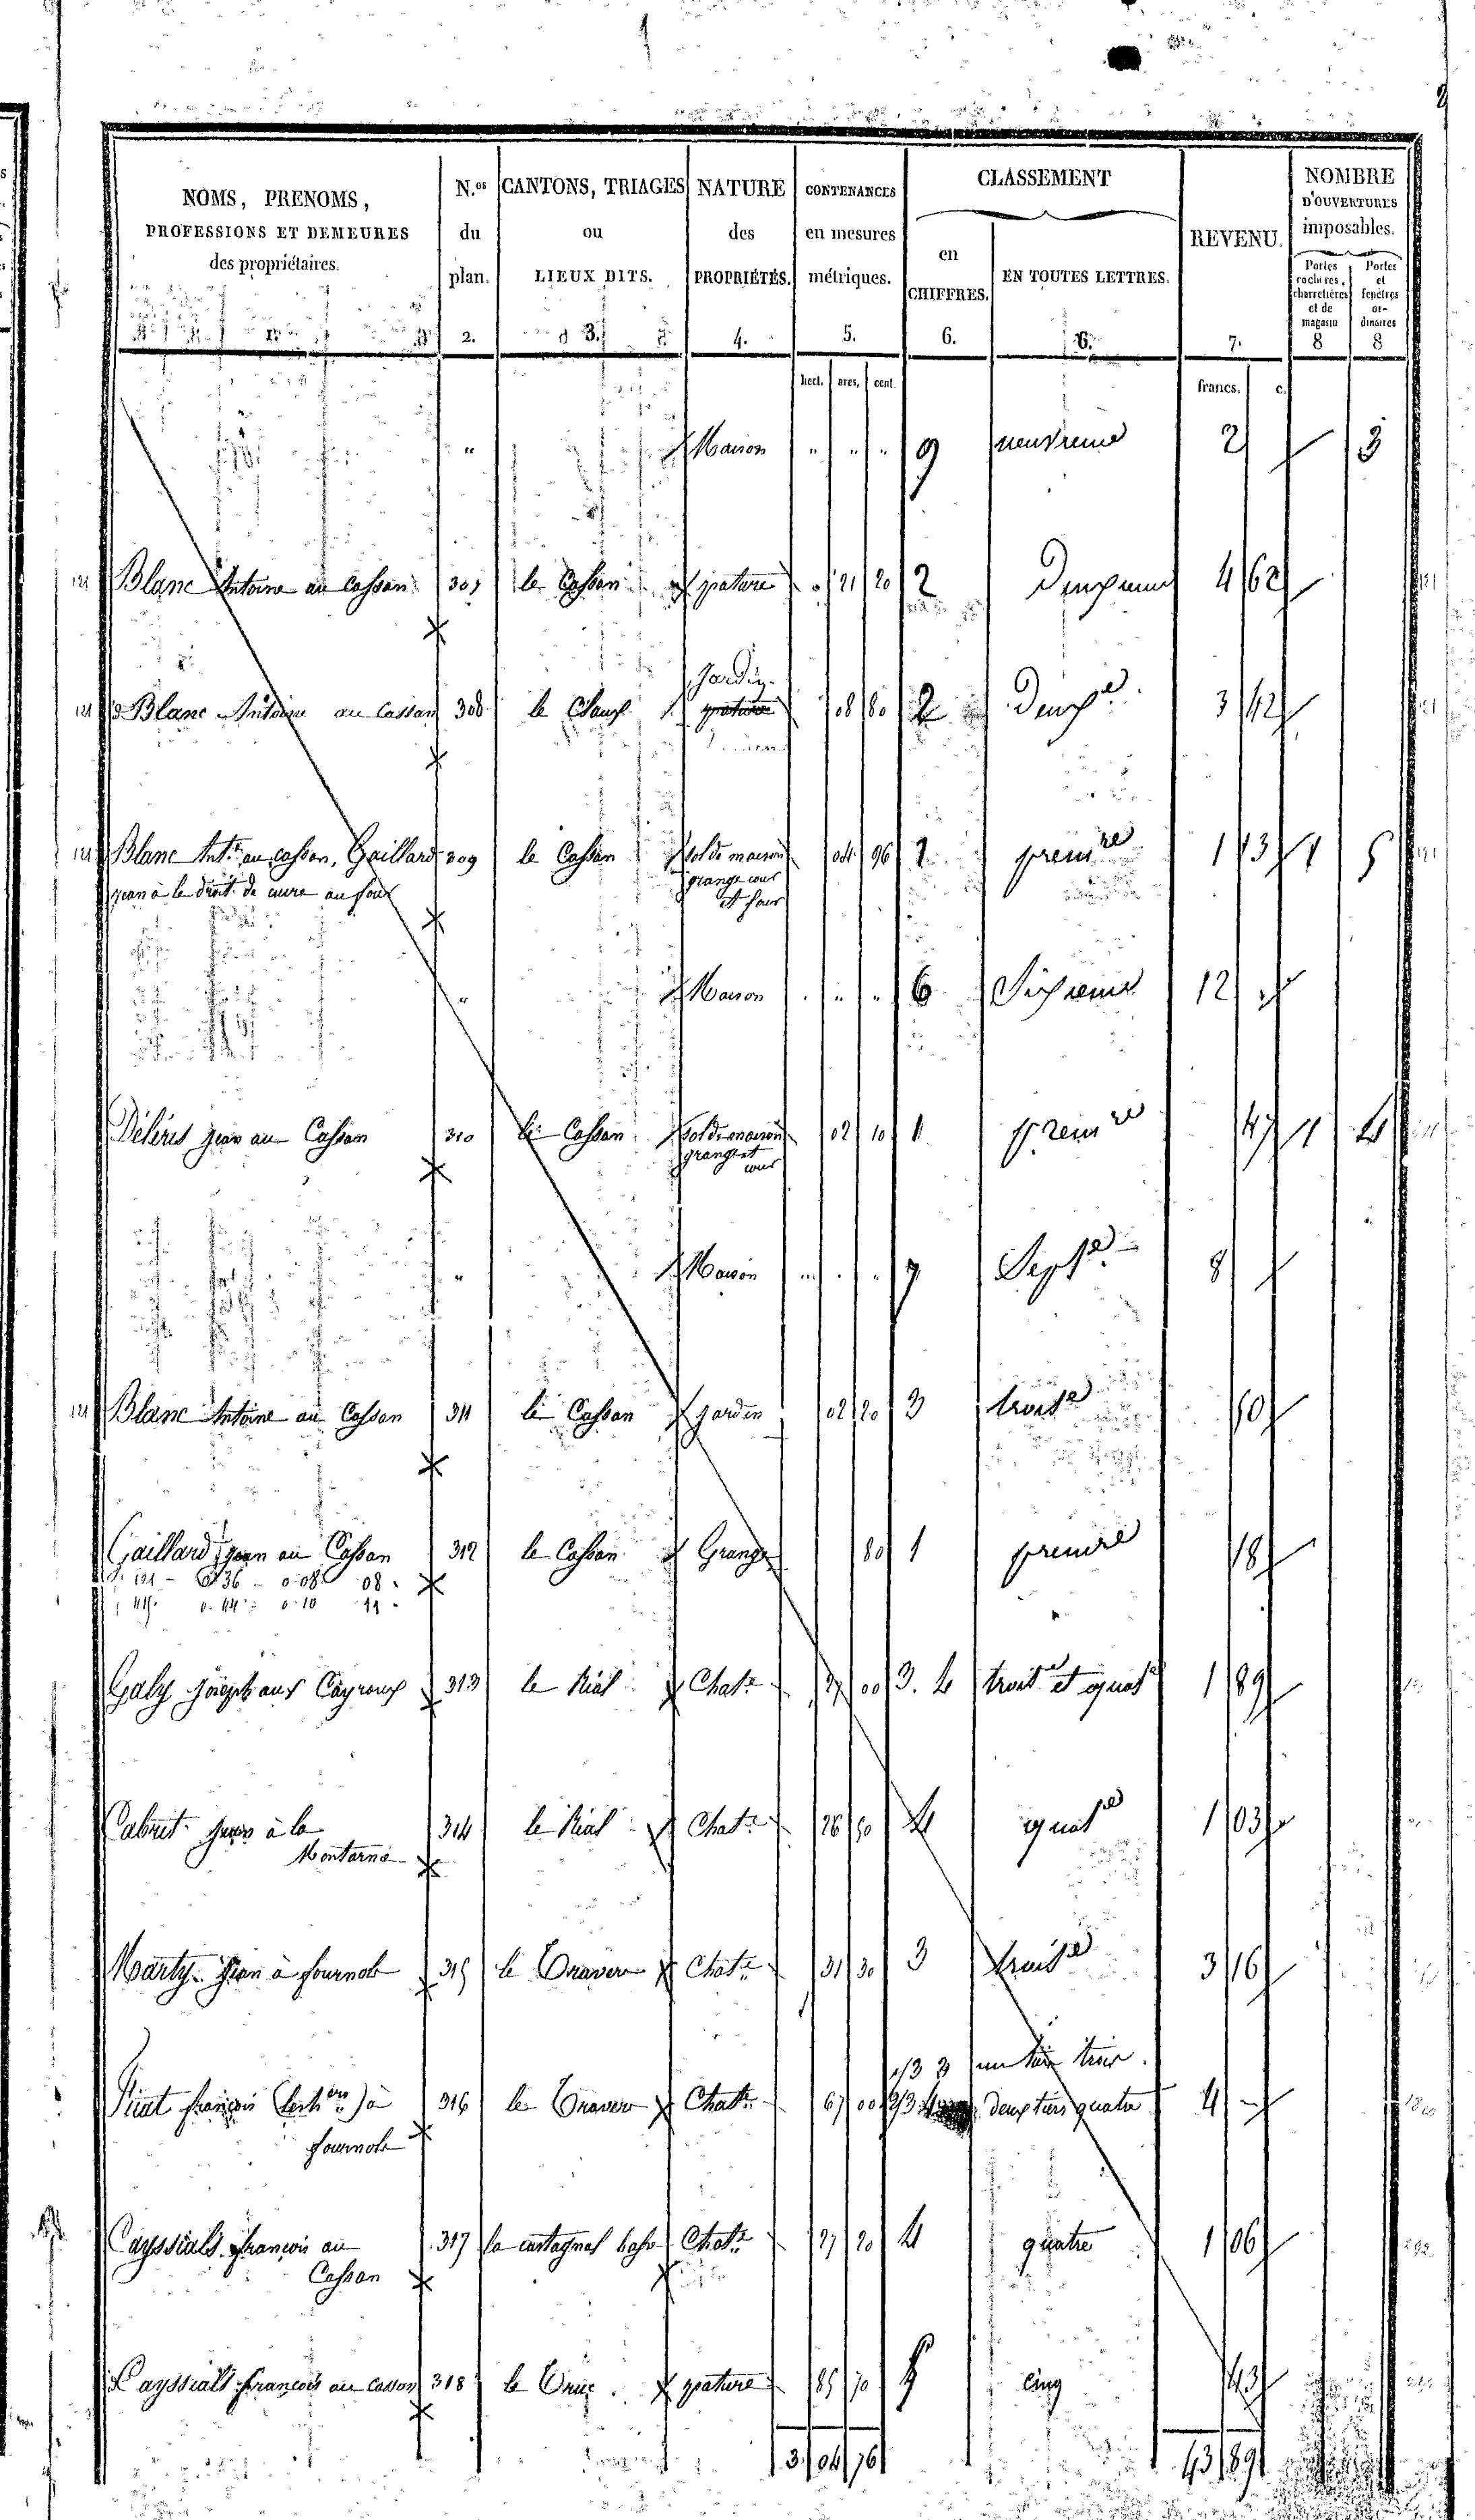 NOMS, PRENOMS, PROFESSIONS ET DEMEURES des propriétaires.
N.os du plan. 2.
CANTONS, TRIAGES ou LIEUX DITS. 3.
NATURE des PROPRIÉTÉS. 4.
CONTENANCES en mesures métriques. 5.
CLASSEMENT
en CHIFFRES. 6.
EN TOUTES LETTRES. 6.
REVENU. 7.
NOMBRE D'OUVERTURES imposables.
Portes cochères, charretières et de magasin 8
Portes et fenêtres ordinaires 8
hect. ares. cent. francs. c.
" Maison " " " 9 neuvieme 2 3
121 Blanc Antoine au Cassan 307 le Cassan pature 21 20 2 Deuxieme 4 62
121 Blanc Antoine au Cassan 308 le Claux Jardin pature 08 80 2 Deuxe 3 42
121 Blanc Ant.ne au Cassan, Gaillard 309 le Cassan Sol de maison 04 96 1 premre 1 73 1 5
jean à le droit de cuire au four grange cour
et four
" Maison . " " 6 Sixieme 12
Déléris jean au Cassan 310 le Cassan Sol de maison 02 10 1 premre 47 1 4
grange et
cour
" Maison " . " 7 Septe 8
121 Blanc Antoine au Cassan 311 le Cassan jardin 02 20 3 troise 60
Gaillard jean au Cassan 312 le Cassan Grange 80 1 premre 18
Galy joseph aux Cayroux 313 le Rial Chat.re 37 00 3. 4 troise et quate 1 89
Cabrit jean à la 314 le Rial Chat.re 26 50 4 quate 1 03
Montarnie
Marty jean à fournols 315 le Travers Chat.re 31 30 3 troise 3 16
1/3 3 un tiers trois
françois à 316 le Travers Chat.re 67 00 2/3 4 deux tiers quatre 4
fournols
Cayssials françois au 317 la castagnal basse Chat.re 27 20 4 quatre 1 06
Cassan
Cayssials françois au Cassan 318 le Truc pature 85 70 5 cinq 43
3 04 76 43 89